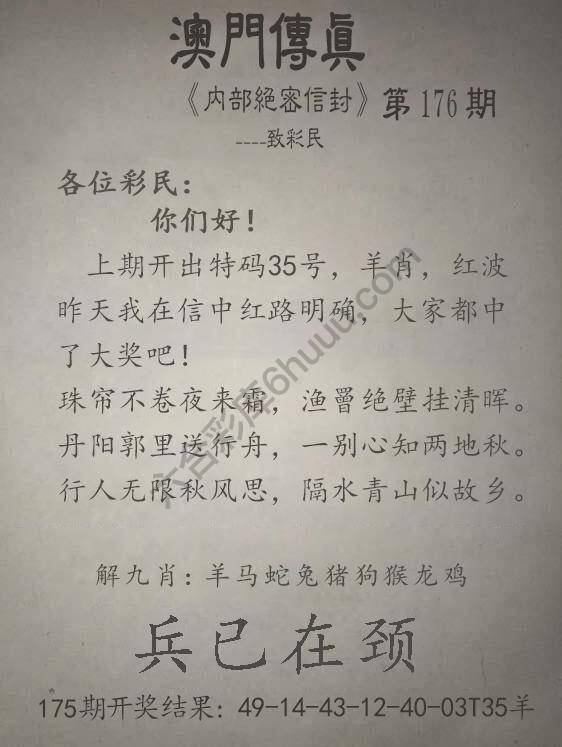 澳門傳真
《内部絕密信封》第176期
----致彩民
各位彩民：
你们好！
上期开出特码35号，羊肖，红波
昨天我在信中红路明确，大家都中
了大奖吧！
珠帘不卷夜来霜，渔罾绝壁挂清晖。
丹阳郭里送行舟，一别心知两地秋。
行人无限秋风思，隔水青山似故乡。
六合彩库6huuu.com
解九肖：羊马蛇兔猪狗猴龙鸡
兵已在颈
175期开奖结果：49-14-43-12-40-03T35羊